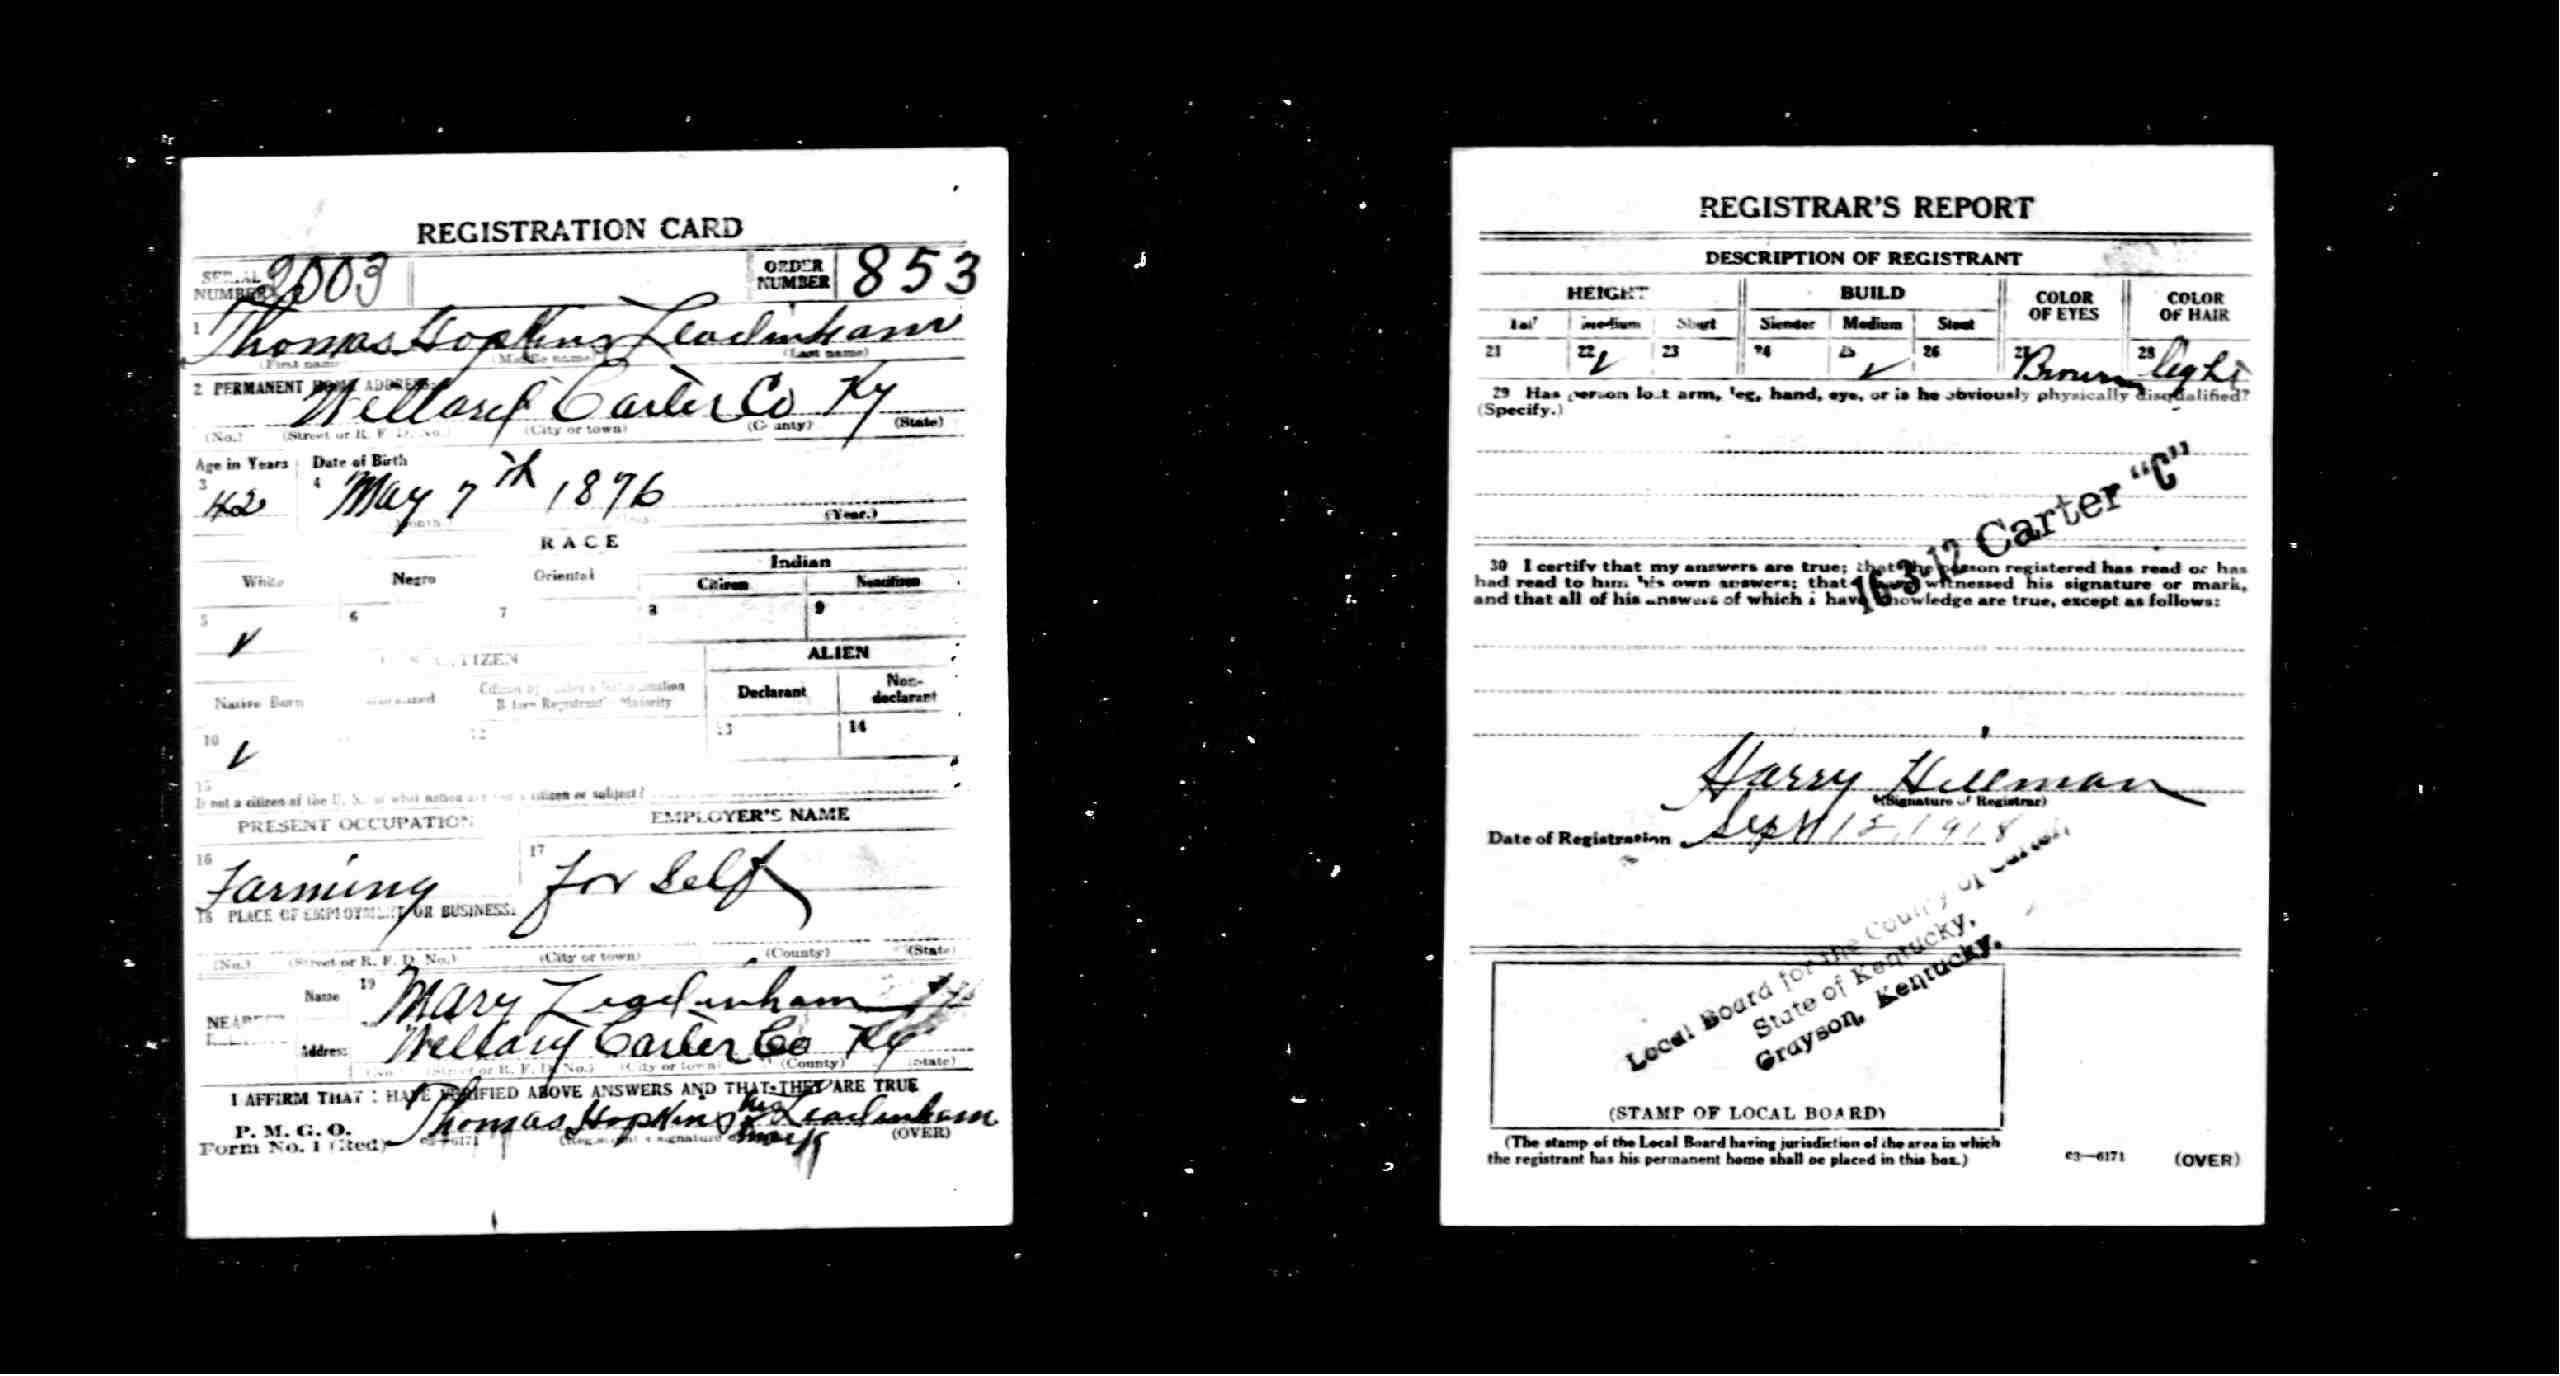 REGISTRATION CARD
SERIAL NUMBER 2003 ORDER NUMBER 853
1 Thomas Hopkins Leadinham
(First name) (Middle name) (Last name)
2 PERMANENT HOME ADDRESS:
Willard Carter Co Ky
(No.) (Street or R. F. D. No.) (City or town) (County) (State)
Age in Years Date of Birth
3 42 4 May 7th 1876
(Month.) (Year.)
RACE
White Negro Oriental Indian
Citizen Noncitizen
5 ✓ 6 7 8 9
U. S. CITIZEN ALIEN
Native Born Declarant Non-declarant
10 ✓ 12 13 14
15
If not a citizen of the U. S., of what nation are you a citizen or subject?
PRESENT OCCUPATION EMPLOYER'S NAME
16 Farming 17 for Self
18 PLACE OF EMPLOYMENT OR BUSINESS:
(No.) (Street or R. F. D. No.) (City or town) (County) (State)
NEAREST
Name 19 Mary Leadinham
Address Willard Carter Co Ky
(No.) (Street or R. F. D. No.) (City or town) (County) (State)
I AFFIRM THAT I HAVE VERIFIED ABOVE ANSWERS AND THAT THEY ARE TRUE
P. M. G. O.
Form No. 1 (Red) 03—6171 Thomas Hopkins his x mark Leadinham
(Registrant's signature or mark) (OVER)
REGISTRAR'S REPORT
DESCRIPTION OF REGISTRANT
HEIGHT BUILD COLOR OF EYES COLOR OF HAIR
Tall Medium Short Slender Medium Stout
21 22 ✓ 23 24 25 ✓ 26 27 Brown 28 light
29 Has person lost arm, leg, hand, eye, or is he obviously physically disqualified?
(Specify.)
16-3-12 Carter "C"
30 I certify that my answers are true; that the person registered has read or has
had read to him his own answers; that I have witnessed his signature or mark,
and that all of his answers of which I have knowledge are true, except as follows:
Harry Hillman
(Signature of Registrar)
Date of Registration Sept 12, 1918
Local Board for the County of Carter,
State of Kentucky,
Grayson, Kentucky.
(STAMP OF LOCAL BOARD)
(The stamp of the Local Board having jurisdiction of the area in which
the registrant has his permanent home shall be placed in this box.)
03—6171 (OVER)